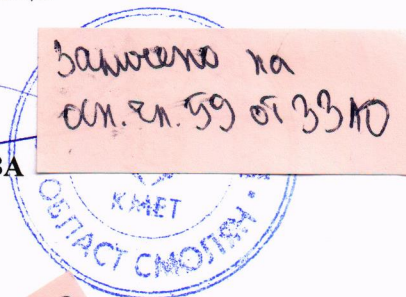 Заличено на
осн. чл. 59 от ЗЗЛД
ВА
КМЕТ
ОБЛАСТ СМОЛЯН